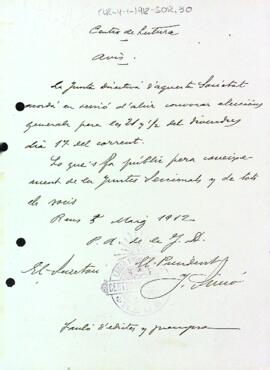 CLR-4-1-1912-SOR,50
Centro de Lectura
Avís.
La Junta directiva d'aquesta Societat
acordá en sessió d'ahir convocar eleccions
generals pera les 21 y 1/2 del divendres
día 17 del corrent.
Lo que's fa públic pera coneixe-
ment de les Juntes Seccionals y de tots
els socis
Reus 5 Maig 1912
P. A. de la J. D.
El Secretari El President
J. Simó
Tauló d'edictes y premsa